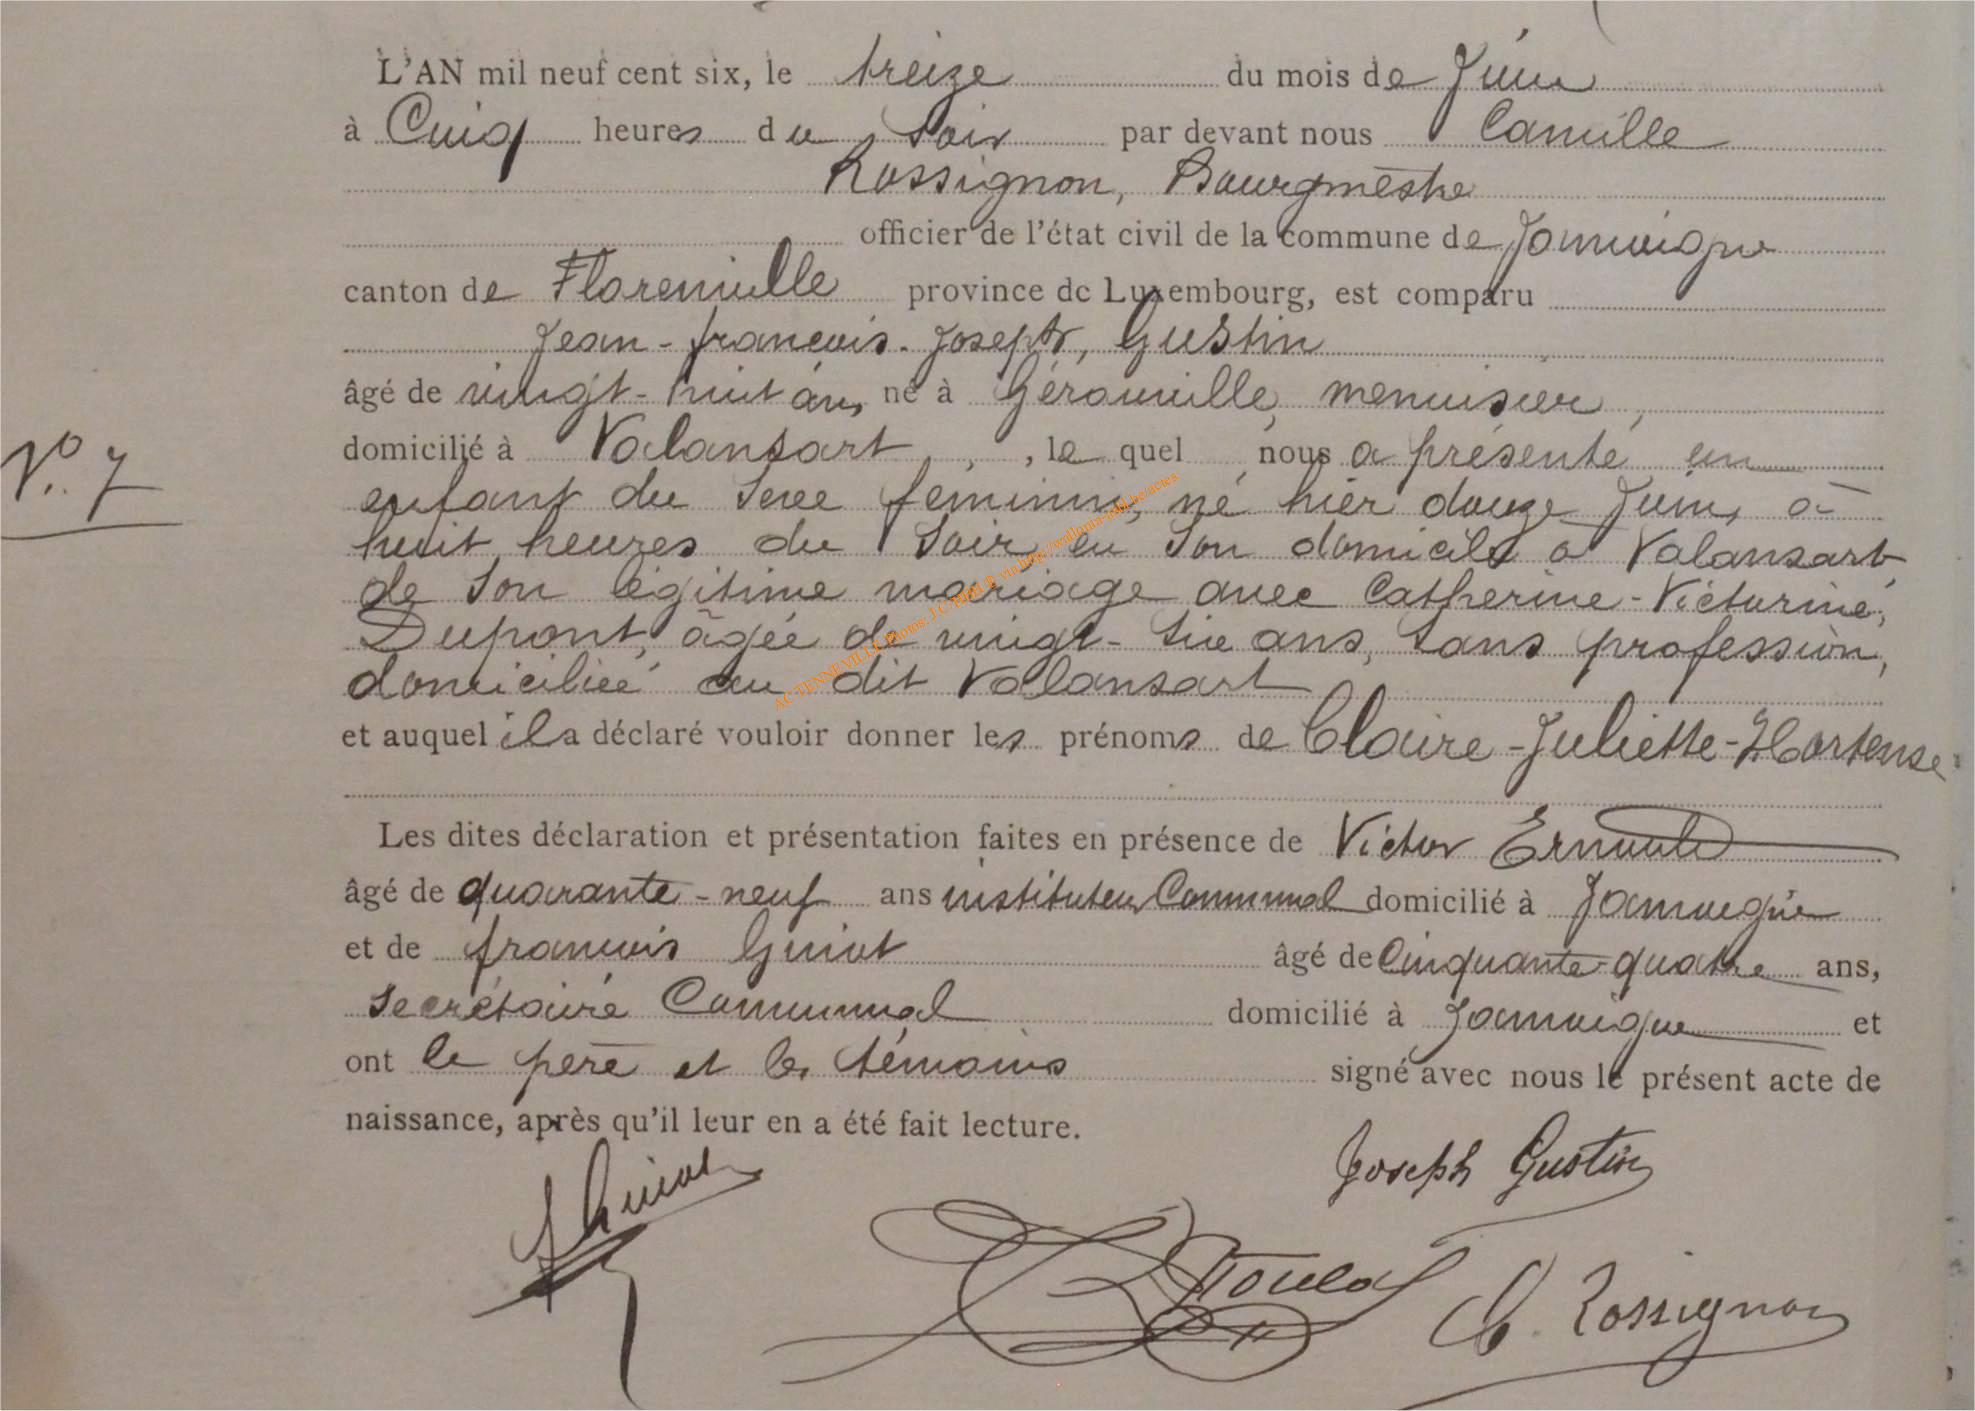 L'AN mil neuf cent six, le treize du mois de Juin
à Cinq heures du Soir par devant nous Camille
Rossignon, Bourgmestre
officier de l'état civil de la commune de Jamoigne
canton de Florenville province de Luxembourg, est comparu
Jean-françois-Joseph, Gustin
âgé de vingt-huit ans, né à Gérouville, menuisier,
domicilié à Valansart, , le quel nous a présenté un
N° 7
enfant du sexe féminin, né hier douze Juin, à
huit heures du Soir en Son domicile à Valansart
de Son légitime mariage avec Catherine-Victorine,
Dupont, âgée de vingt-six ans, sans profession,
domiciliée au dit Valansart
et auquel il a déclaré vouloir donner les prénoms de Claire-Juliette-Hortense
Les dites déclaration et présentation faites en présence de Victor
âgé de quarante-neuf ans instituteur Communal domicilié à Jamoigne
et de françois Guiot âgé de Cinquante-quatre ans,
Secrétaire Communal domicilié à Jamoigne et
ont le père et les témoins signé avec nous le présent acte de
naissance, après qu'il leur en a été fait lecture.
Joseph Gustin
f Guiot
C. Rossignon
AC TENNEVILLE Photos: J.C.